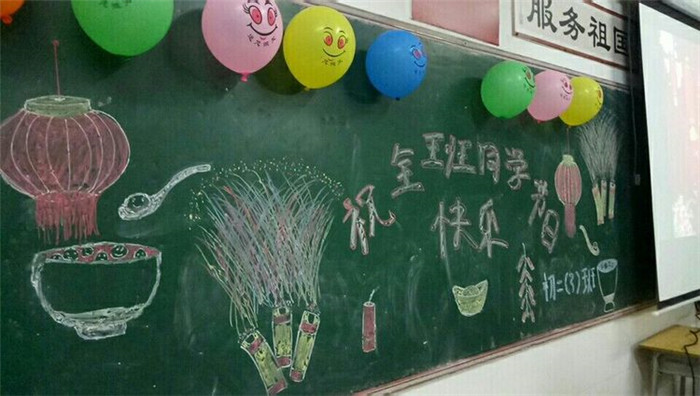 服务祖国
祝
全班同学
节日
快乐
初二(3)班